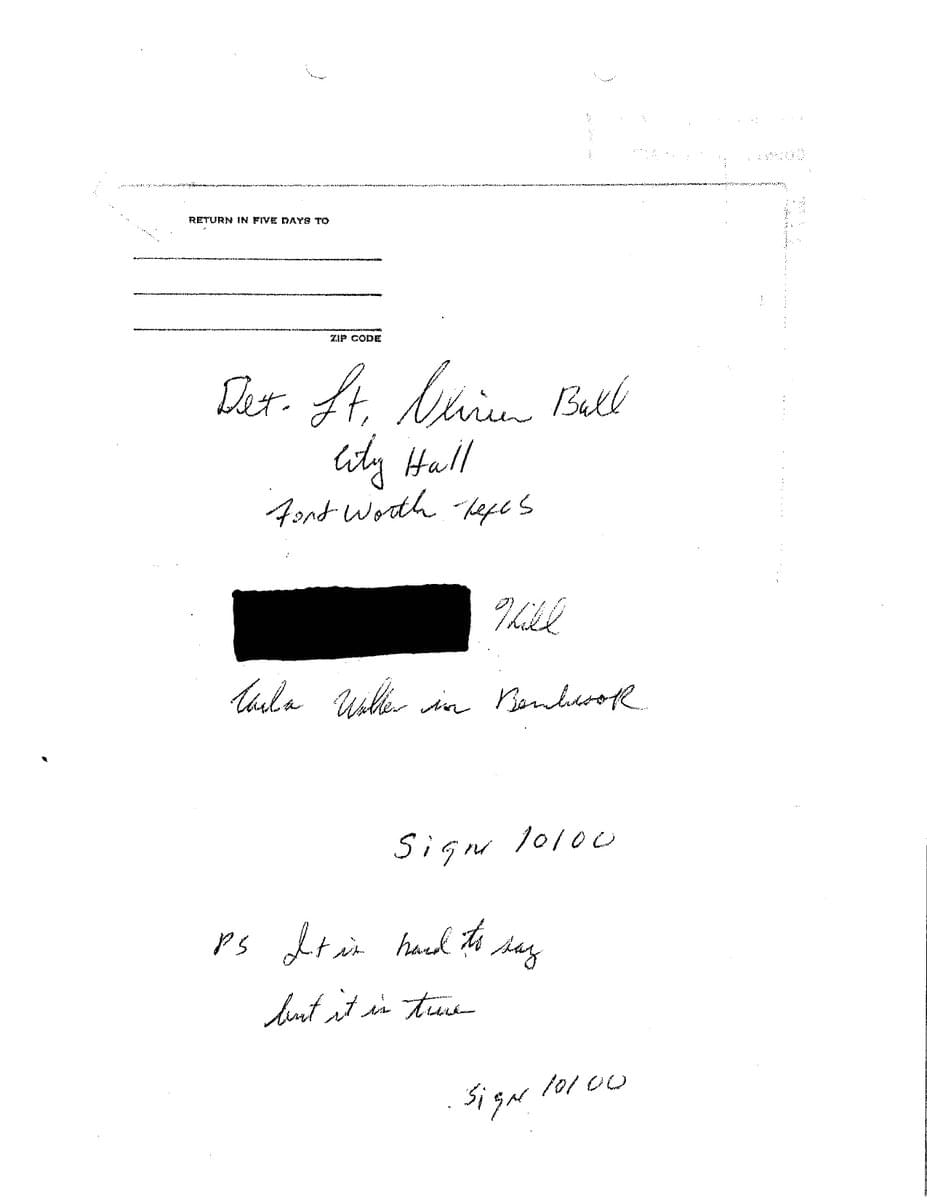 RETURN IN FIVE DAYS TO
ZIP CODE
Det. Lt. Oliver Ball
City Hall
Fort Worth Texas
Kill
Carla Walker in Benbrook
Sign 10100
PS It is hard to say
but it is true
Sign 10100